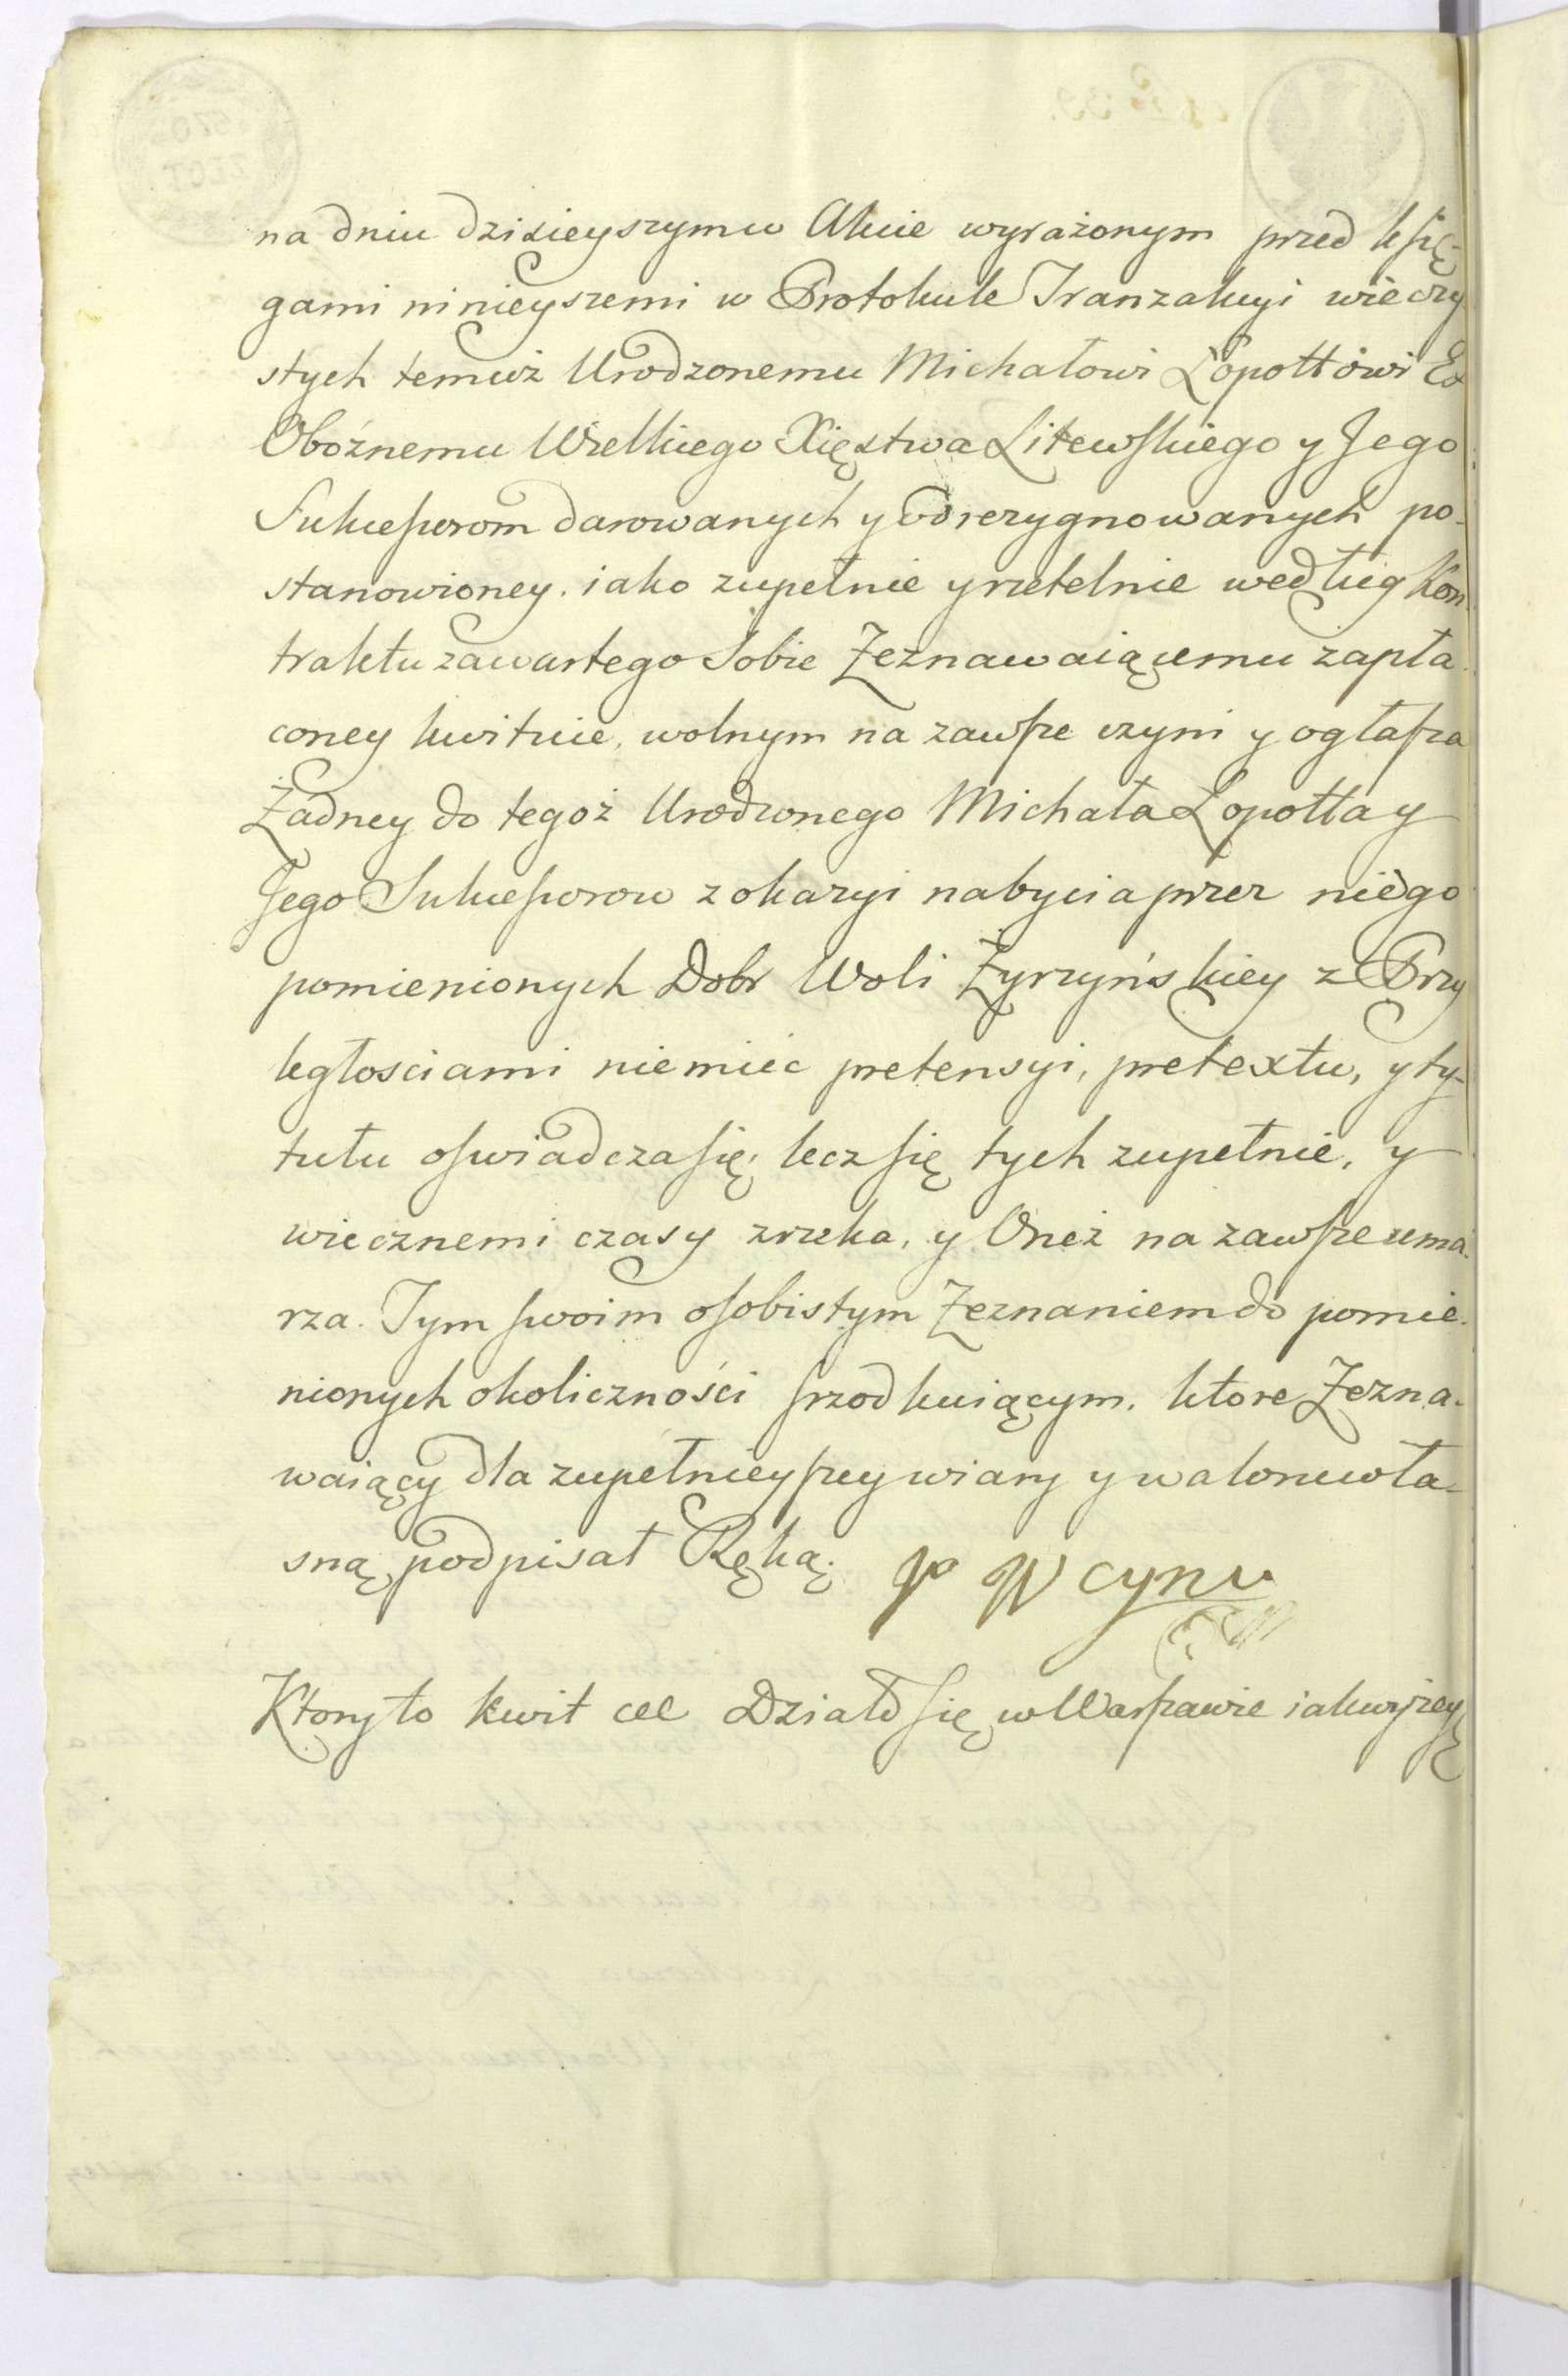 na dniu dzisieyszym w Akcie wyrażonym przed księ-
gami ninieyszemi w Protokule Tranzakcyi wieczy
stych temuż Urodzonemu Michałowi Łopottowi Ex
Oboźnemu Wielkiego Xięstwa Litewskiego y Jego
Sukcessorom darowanych y odrezygnowanych po-
stanowioney. iako zupełnie y rzetelnie według Kon
traktu zawartego Sobie Zeznawaiącemu zapła-
coney kwituie, wolnym na zawsze czyni y ogłasza
Żadney do tegoż Urodzonego Michała Łopotta y
Jego Sukcessorow z okazyi nabycia przez niego
pomienionych Dobr Woli Żyrzyńskiey z Przy
ległosciami niemieć pretensyi, pretextu, y ty-
tułu oswiadcza się; lecz się tych zupełnie, y
wiecznemi czasy zrzeka, y Oneż na zawsze uma-
rza. Tym swoim osobistym Zeznaniem do pomie-
nionych okoliczności srzodkuiącym. ktore Zezna-
waiący dla zupełnieyszey wiary y waloru wła-
sną podpisał Ręką.
Ktory to kwit etc Działo się w Warszawie iak wyżey